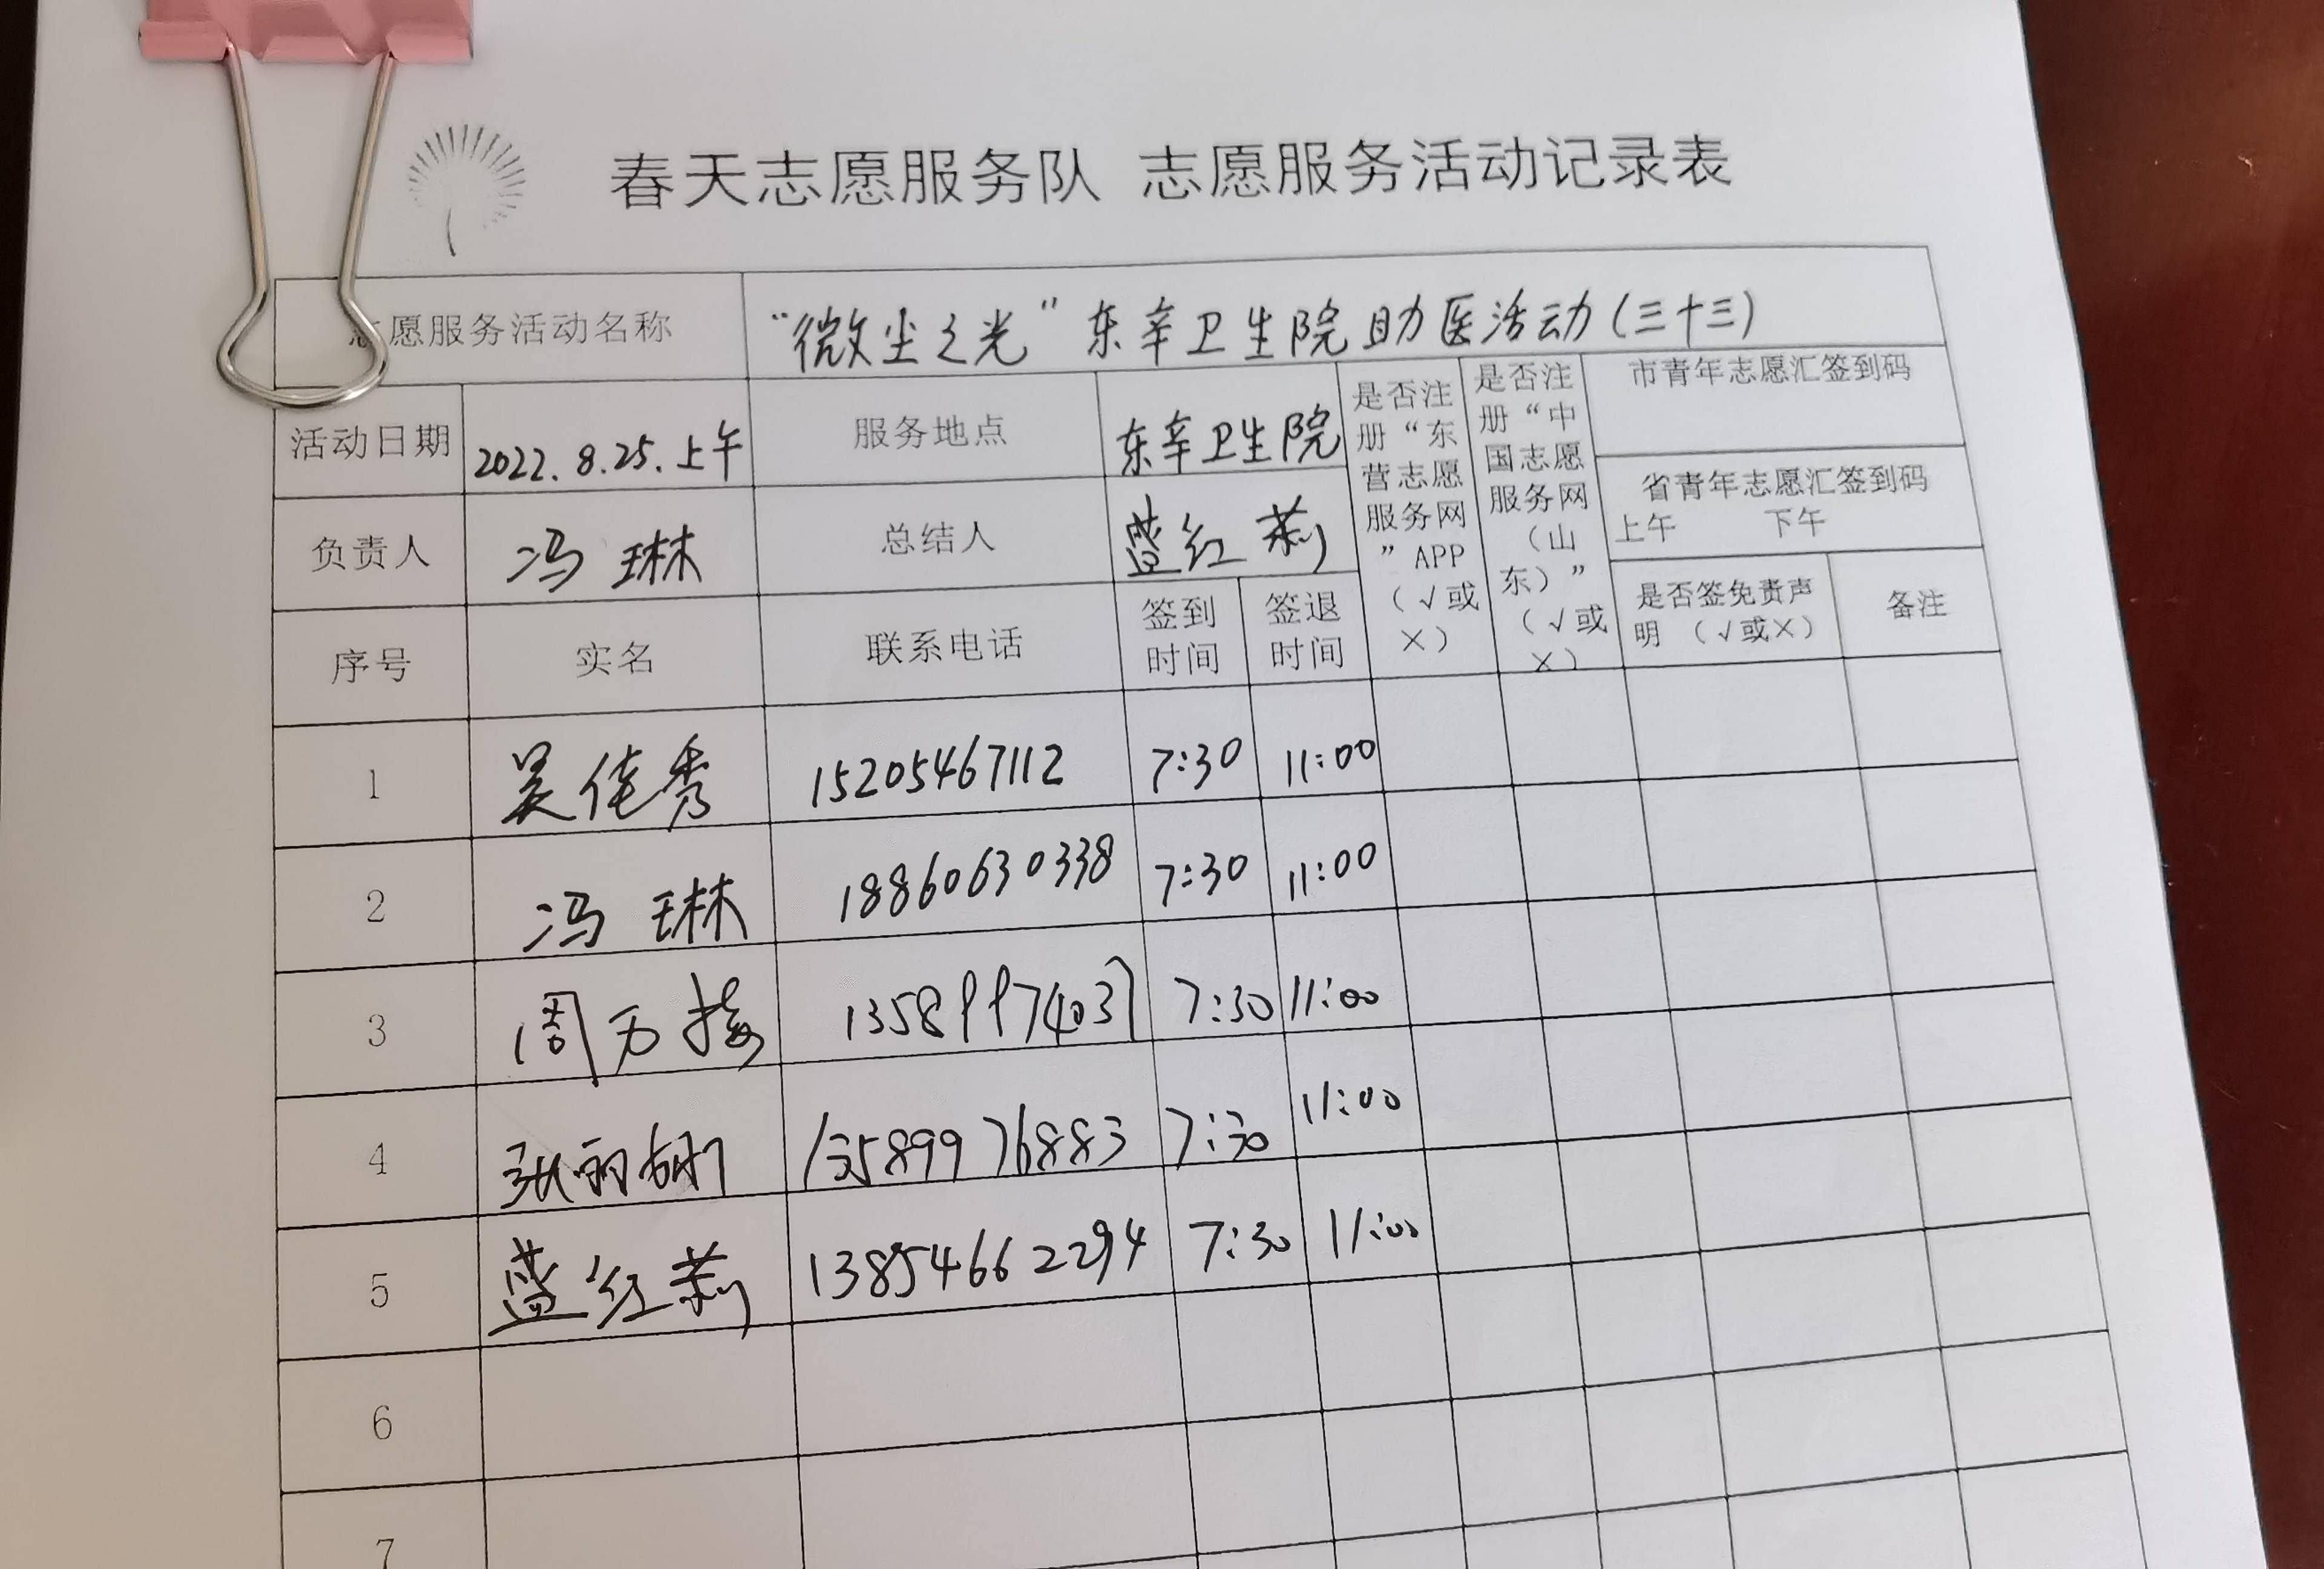 春天志愿服务队 志愿服务活动记录表
志愿服务活动名称 “微尘之光”东辛卫生院助医活动(三十三)
活动日期 2022.8.25.上午 服务地点 东辛卫生院
负责人 冯琳 总结人 蓝红莉
是否注册“东营志愿服务网”APP（√或×）
是否注册“中国志愿服务网（山东）”（√或×）
市青年志愿汇签到码
省青年志愿汇签到码
上午 下午
序号 实名 联系电话 签到时间 签退时间 是否签免责声明（√或×） 备注
1 吴佳秀 15205467112 7:30 11:00
2 冯琳 18860630338 7:30 11:00
3 周万接 13589974037 7:30 11:00
4 张丽娜 13589976883 7:30 11:00
5 蓝红莉 13854662294 7:30 11:00
6
7